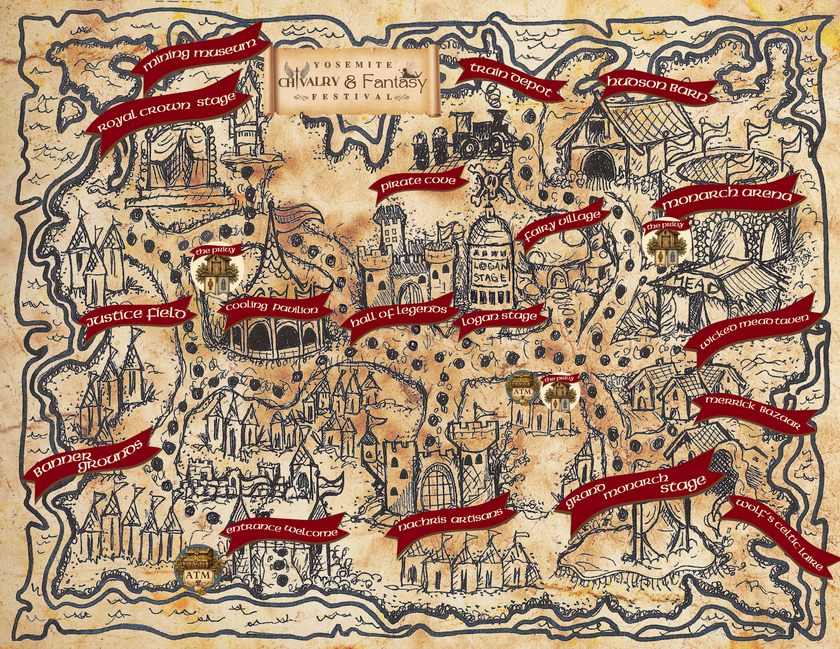 Mining Museum
Royal Crown Stage
YOSEMITE
CHIVALRY & Fantasy
FESTIVAL
Train Depot
Hudson Barn
Pirate Cove
Monarch Arena
Fairy Village
The Privy
The Privy
LOGAN
STAGE
MEAD
Justice Field
Cooling Pavilion
Hall of Legends
Logan Stage
Wicked Mead Taven
ATM
The Privy
Merrick Bazaar
Banner
Grounds
Grand Monarch
Stage
Entrance Welcome
Nachris Artisans
Wolf's Celtic Laire
ATM